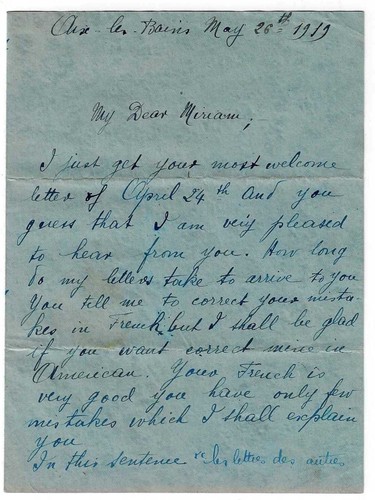 Aix-les-Bains May 26th 1919
My Dear Miriam,
I just get your most welcome
letter of April 24th and you
guess that I am very pleased
to hear from you. How long
do my letters take to arrive to you
You tell me to correct your mista-
kes in French but I shall be glad
if you want correct mine in
American. Your French is
very good you have only few
mistakes which I shall explain
you
In this sentence "les lettres des autres